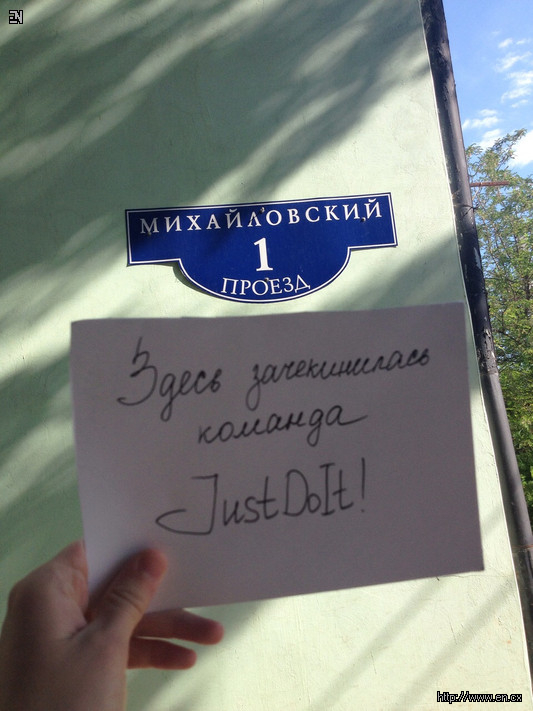 EN
МИХАЙЛОВСКИЙ
1
ПРОЕЗД
Здесь зачекинилась
команда
JustDoIt!
http://www.en.cx